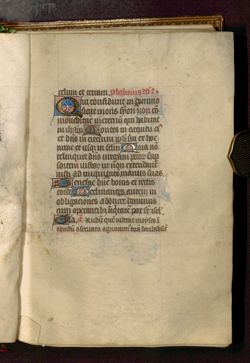 celum et terram. psalmus
Qui confidunt in domino
sicut mons syon non com
movebitur in eternum qui habitat
in ihrlm Montes in circuitu eius
et dns in circuitu ppli sui ex hoc
nunc et usqz in sclm Quia non
relinquet dns virgam peccator sup
sortem iustor ut non extendant
iusti ad iniquitatem manus suas
Benefac dne bonis et rectis
corde Declinantes autem in
obligationes adducet dominus
cum operantibz iniqtatē pax sr isrl
Rubum quem viderat moyses in